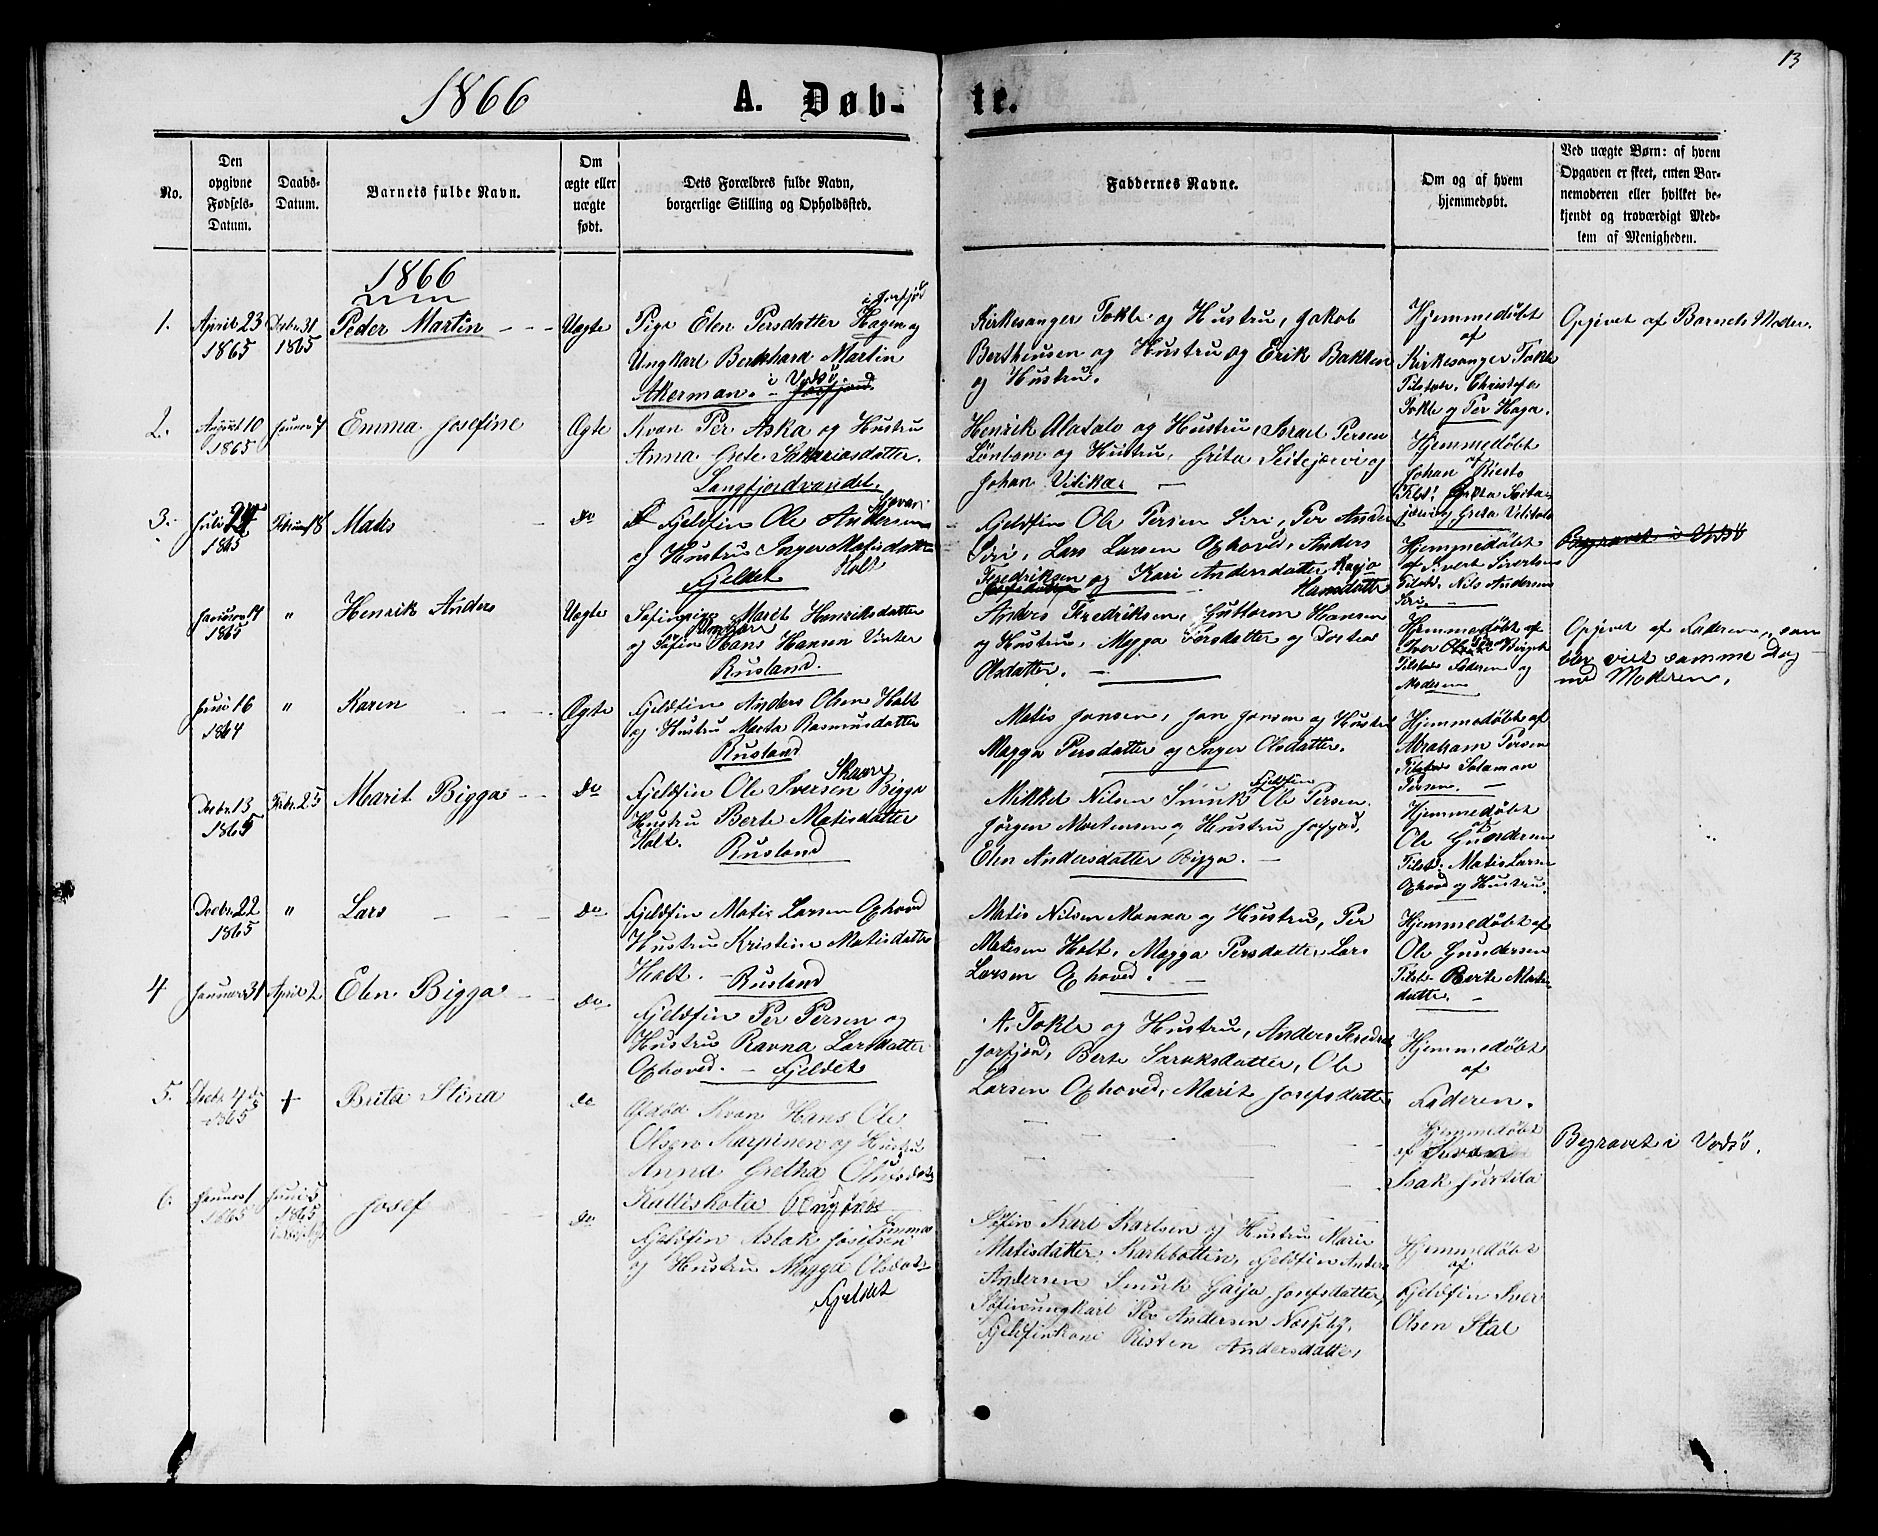 13
1866
A. Døb-
te.
No.
Den
opgivne
Fødsels-
Datum.
Daabs-
Datum.
Barnets fulde Navn.
Om
ægte eller
uægte
født.
Dets Forældres fulde Navn,
borgerlige Stilling og Opholdssted.
Faddernes Navne.
Om og af hvem
hjemmedøbt.
Ved uægte Børn: af hvem
Opgaven er skeet, enten Bar-
nemoderen eller hvilket be-
kjendt og troværdigt Med-
lem af Menigheden.
1866
1.
April 23
1865
Decbr. 31
1865
Peder Martin
Uægte
i Jarfjord
Pige Elen Persdatter Hagen og
Ungkarl Bernhard Martin
Akerman. i Vadsø. Jarfjord.
Kirkesanger Tokle og Hustru, Jakob
Bertheusen og Hustru og Erik Bakken
og Hustru.
Hjemmedøbt
af
Kirkesanger Tokle
Tilstede. Christofa
Tokle og Per Haga.
Opgivet af Barnets Moder.
2.
August 10
1865
Januar 7
Emma Josefine
Ægte
Kvæn Per Aska og Hustru
Anna Grete Sakariasdatter.
Langfjordvandet.
Henrik Alatalo og Hustru, Israel Persen
Lønbom og Hustru, Grita Seitejærvi og
Johan
Hjemmedøbt
af
Johan Kiesto
Tilst: Greta Seita-
jærvi og Greta
3.
Juli 24
1865
Februar 18
Matis
Do
Fjeldfin Ole Andersen
og Hustru Inger Matisdatter
Holt
Fjeldet
Fjeldfin Ole Persen Siri, Per Ander
Siri, Lars Larsen Ophoved, Anders
Fredriksen og Kari Andersdatter
Hansdatter
Hjemmedøbt
af Sivert Sivertsen
Tilst: Nils Andersen
Siri
Begravet i Vadsø
Januar 14
1865
"
Henrik Anders
Uægte
Søfinpige Marit Henriksdatter
Ungkarl
og Søfin Hans Hansen Vinter
Rusland.
Anders Fredriksen, Guttorm Hansen
og Hustru, Magga Persdatter og Dortea
Olsdatter.
Hjemmedøbt af
Iver
Tilstede Faderen og
Moderen
Opgivet af Faderen, som
blev viet samme Dag
med Moderen.
Juni 16
1864
"
Karen
Ægte
Fjeldfin Anders Olsen Holt
og Hustru Marta Rasmusdatter
Rusland
Matis Jonsen, Jon Jonsen og Hustru
Magga Persdatter og Inger Olsdatter.
Hjemmedøbt af
Abraham Persen
Tilstede Salamon
Persen.
Decbr. 13
1865
Febr. 25
Marit Bigga
Do
Skarre
Fjeldfin Ole Iversen Bigga
Hustru Berte Matisdatter
Holt.
Rusland
Fjeldfin
Mikkel Nilsen Smuk Ole Persen.
Jørgen Mortensen og Hustru Jarfjord,
Elen Andersdatter Bigga.
Hjemmedøbt
af
Ole Gundersen
Tilst: Matis Larsen
Ophoved og Hustru.
"
Decbr. 22
1865
"
Lars
Do
Fjeldfin Matis Larsen Ophoved
Hustru Kristine Matisdatter
Holt. Rusland
Matis Nilsen Manna og Hustru, Per
Matisen Holt, Magga Persdatter, Lars
Larsen Ophoved.
Hjemmedøbt af
Ole Gundersen
Tilst. Berte Matis-
datter.
4
Januar 31
April 2
Elen Bigga
Do.
Fjeldfin Per Persen og
Hustru Ravna Larsdatter
Ophoved. Fjeldet
A. Tokle og Hustru, Anders Fredrik
Jarfjord, Berte Saraksdatter, Ole
Larsen Ophoved, Marit Josefsdatter
Hjemmedøbt
af
Faderen.
5.
Decbr. 4de
1865
+
Brita Stina
do
Afdød Kvæn Hans Ole
Olsen Karpinen og Hustru
Anna Gretha Olausdatter
Hjemmedøbt
af Kvæn
Isak Jurtila
Begravet i Vadsø.
6.
Januar 1
1865
Juni 5
1865
Josef
Do
Fjeldfin Aslak Josefsen
og Hustru Magga Olsdatter
Fjeldet
Søfin Karl Karlsen og Hustru Marie
Matisdatter Karlebotten, Fjeldfin Anders
Andersen Smuk Gaija Josefsdatter,
Søfinungkarl Per Andersen Næsseby,
Fjeldfinkone Risten Andersdatter.
Hjemmedøbt
af
Fjeldfin Iver
Olsen Stal